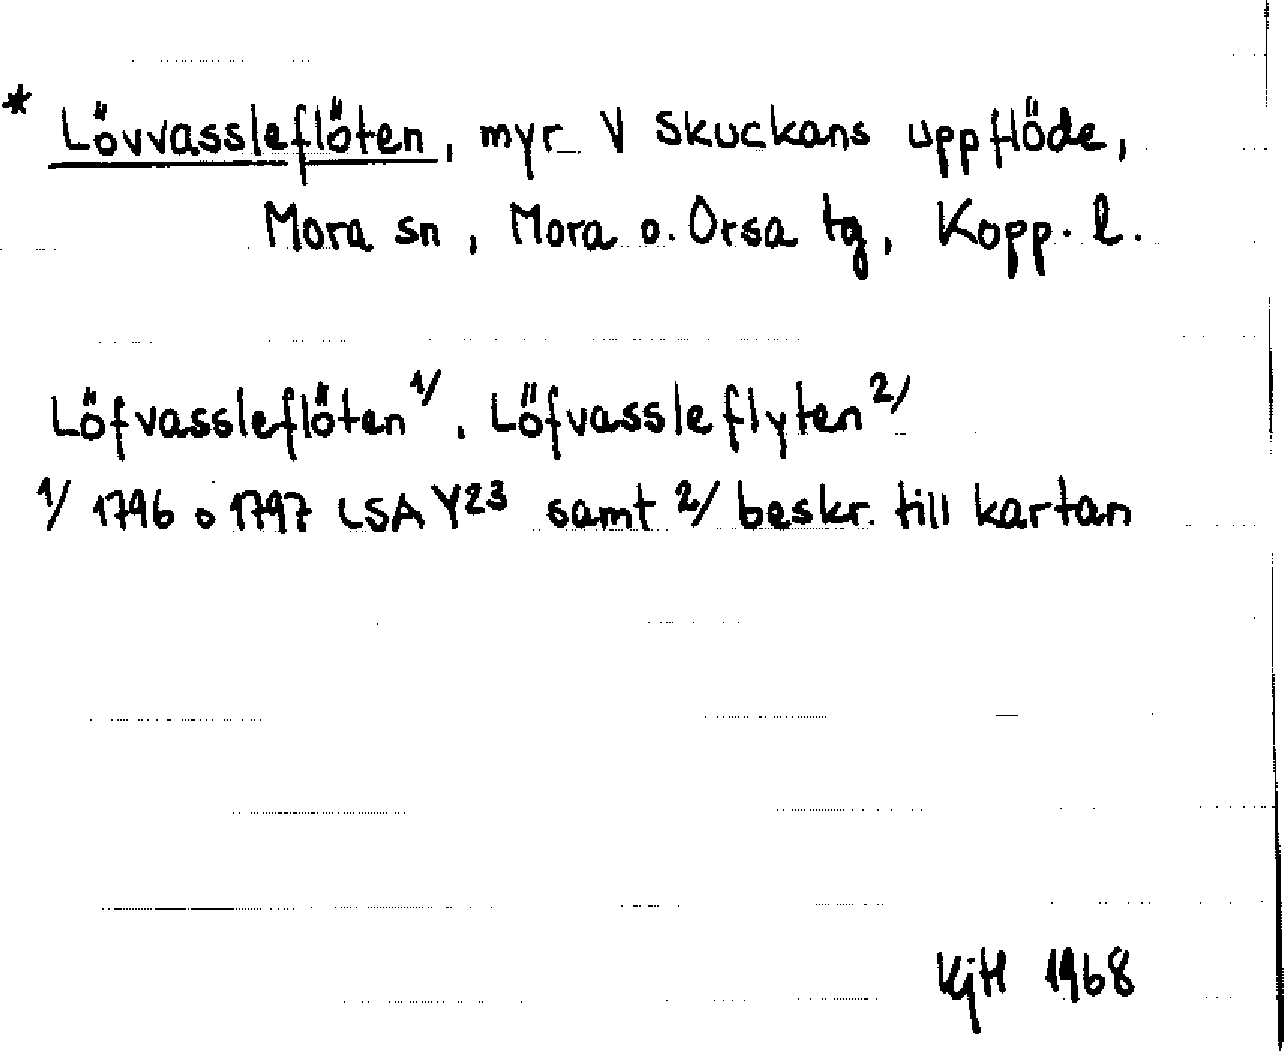 * Lövvassleflöten, myr V Skuckans uppflöde,
Mora sn, Mora o. Orsa tg, Kopp. l.
Löfvassleflöten 1/, Löfvassleflyten 2/
1/ 1796 o 1797 LSA Y23 samt 2/ beskr. till kartan
KjH 1968